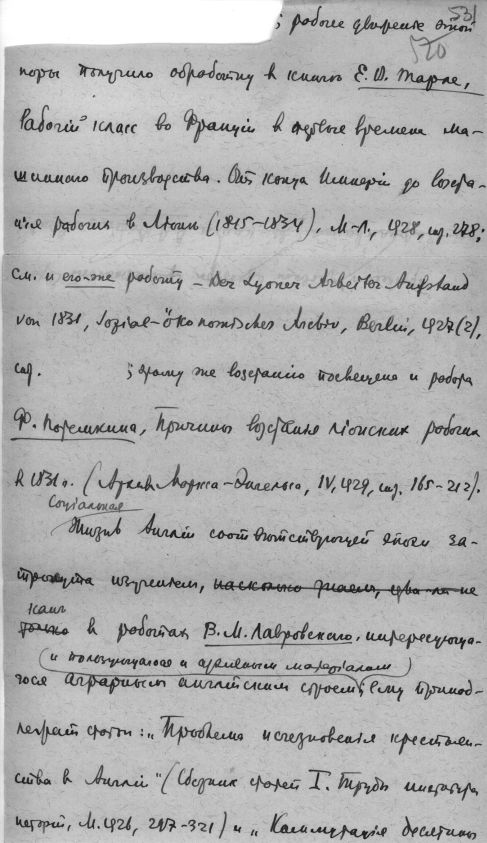 531
520
; рабочее движение этой
поры получило обработку в книгѣ Е. В. Тарле,
Рабочій класс во Франціи в первые времена ма-
шинного производства. От конца Имперіи до возста-
нія рабочих в Ліонѣ (1815-1834), М-Л., 1928, стр. 278;
см. и его-же работу – Der Lyoner Arbeiter Aufstand
von 1831, Sozial-ökonomisches Archiv, Berlin, 1927 (2),
стр. ; этому же возстанію посвящена и работа
Ф. Потемкина, Причины возстанія ліонских рабочих
в 1831 г. (Архив Маркса-Энгельса, IV, 1929, стр. 165-212).
Соціальная
Жизнь Англіи соответствующей эпохи за-
тронута изученіем, насколько знаем, едва ли не
только в работах В. М. Лавровского, интересующа-
и пользующагося и архивным матеріалом
гося аграрным англійским строем; ему принад-
лежат статьи: „Проблема исчезновенія крестьян-
ства в Англіи" (Сборник статей I. Труды института
исторіи, М. 1926, 297-321) и „Коммутація десятины